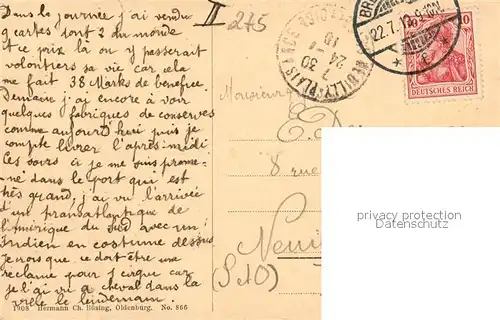 Dans la journée j'ai vendu
9 cartes sont 2 du monde
et ce prix là on y passerait
volontiers sa vie car cela
me fait 38 Marks de benefice.
Demain j'ai encore à voir
quelques fabriques de conserves
comme aujourd'hui puis je
compte livrer l'après midi.
Ces soirs ci je me suis prome-
né dans le port qui est
très grand, j'ai vu l'arrivée
d'un transatlantique de
l'amérique du Sud avec un
Indien en costume dessus
Je crois que ce doit être une
reclame pour 1 cirque car
je l'ai vu à cheval dans la
ville le lendemain.
1908 Hermann Ch. Büsing, Oldenburg. No. 866
II
275
Monsieur
E.
8 rue
Neuil
(S et O)
NEUILLY-PLAISANCE
7 30
24 - 7
10
BR
22.7.10.9-10N
10
DEUTSCHES REICH
privacy protection
Datenschutz